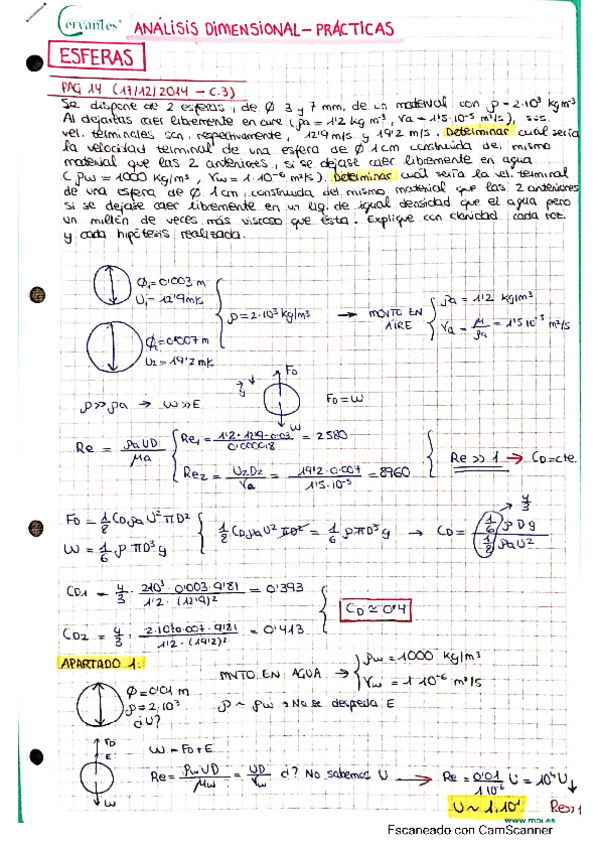 Cervantes
ANÁLISIS DIMENSIONAL - PRÁCTICAS
ESFERAS
PAG 14 (17/12/2014 - C.3)
Se dispone de 2 esferas, de Ø 3 y 7 mm, de un material con ρ = 2·10³ kg/m³
Al dejarlas caer libremente en aire (ρa = 1'2 kg/m³, Va = 1'5·10⁻⁵ m²/s), sus
vel. terminales son, respectivamente, 12'9 m/s y 19'2 m/s. Determinar cuál sería
la velocidad terminal de una esfera de Ø 1 cm construida del mismo
material que las 2 anteriores, si se dejase caer libremente en agua
(ρw = 1000 kg/m³, Vw = 1·10⁻⁶ m²/s). Determinar cuál sería la vel. terminal
de una esfera de Ø 1 cm, construida del mismo material que las 2 anteriores
si se dejase caer libremente en un liq. de igual densidad que el agua pero
un millón de veces más viscoso que ésta. Explique con claridad cada
y cada hipótesis realizada.
Ø₁ = 0'003 m
U₁ = 12'9 m/s
Ø₂ = 0'007 m
U₂ = 19'2 m/s
ρ = 2·10³ kg/m³ → MOVTO EN AIRE
ρa = 1'2 kg/m³
Va = μ/ρa = 1'5·10⁻⁵ m²/s
ρ >> ρa → W >> E
FD
W
FD = W
Re = ρa U D / μa
Re₁ = 1'2 · 12'9 · 0'03 / 0'000018 = 2580
Re₂ = U₂D₂ / Va = 19'2 · 0'007 / 1'5·10⁻⁵ = 8960
Re >> 1 → CD = cte.
FD = 1/8 CD ρa U² π D²
W = 1/6 ρ π D³ g
1/8 CD ρa U² π D² = 1/6 ρ π D³ g → CD = (1/6) ρ D g / (1/8) ρa U²
4/3
CD1 = 4/3 · 2·10³ · 0'003 · 9'81 / 1'2 · (12'9)² = 0'393
CD2 = 4/3 · 2·10³ · 0'007 · 9'81 / 1'2 · (19'2)² = 0'413
CD ≃ 0'4
APARTADO 1.
Ø = 0'01 m
ρ = 2·10³
¿U?
MNTO EN AGUA →
ρw = 1000 kg/m³
Vw = 1·10⁻⁶ m²/s
ρ ~ ρw → No se desprecia E
FD
E
W
W = FD + E
Re = ρw U D / μw = UD / Vw ¿? No sabemos U → Re = 0'01 / 1·10⁻⁶ U = 10⁴ U
U ~ 1·10¹ Re>>1
Escaneado con CamScanner